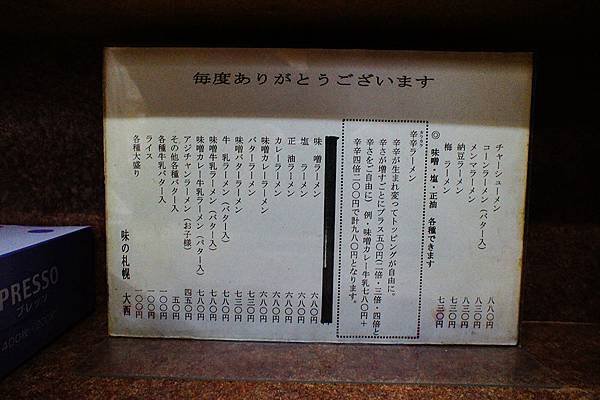 毎度ありがとうございます
チャーシューメン 八八〇円
コーンラーメン(バター入) 八三〇円
メンマラーメン 八三〇円
納豆ラーメン 七三〇円
梅ラーメン 七三〇円
◎味噌・塩・正油 各種できます
辛辛ラーメン
辛辛が生まれ変ってトッピングが自由に。
辛さが増すごとにプラス五〇円(二倍・三倍・四倍と
辛さをご自由に) 例・味噌カレー牛乳七八〇円+
辛辛四倍二〇〇円で計九八〇円となります。
味噌ラーメン 六八〇円
塩ラーメン 六八〇円
正油ラーメン 六八〇円
カレーラーメン 六八〇円
味噌カレーラーメン 六八〇円
バターラーメン 七三〇円
味噌バターラーメン 七三〇円
牛乳ラーメン(バター入) 七八〇円
味噌牛乳ラーメン(バター入) 七八〇円
味噌カレー牛乳ラーメン(バター入) 七八〇円
アジチャンラーメン(お子様) 四五〇円
その他各種バター入 五〇円
各種牛乳バター入 一〇〇円
ライス 一〇〇円
各種大盛り 一〇〇円
味の札幌 大西
PRESSO